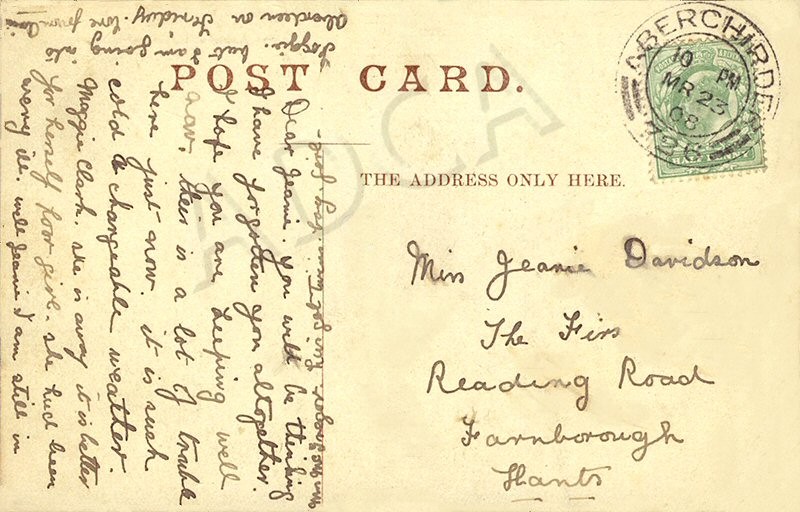 POST CARD.
THE ADDRESS ONLY HERE.
ABERCHIRDER
10 PM
MR 23
08
226
Miss Jeanie Davidson
The Firs
Reading Road
Farnborough
Hants
Dear Jeanie. you will be thinking
I have forgotten you altogether.
I hope you are keeping well
aw, their is a lot of trouble
here just now. it is such
cold & changeable weather.
Maggie Clark. she is away it is better
for herself poor girl. she had been
very ill. well Jeanie I am still in
Foggie. but I am going into
Aberdeen on love from
ADCA